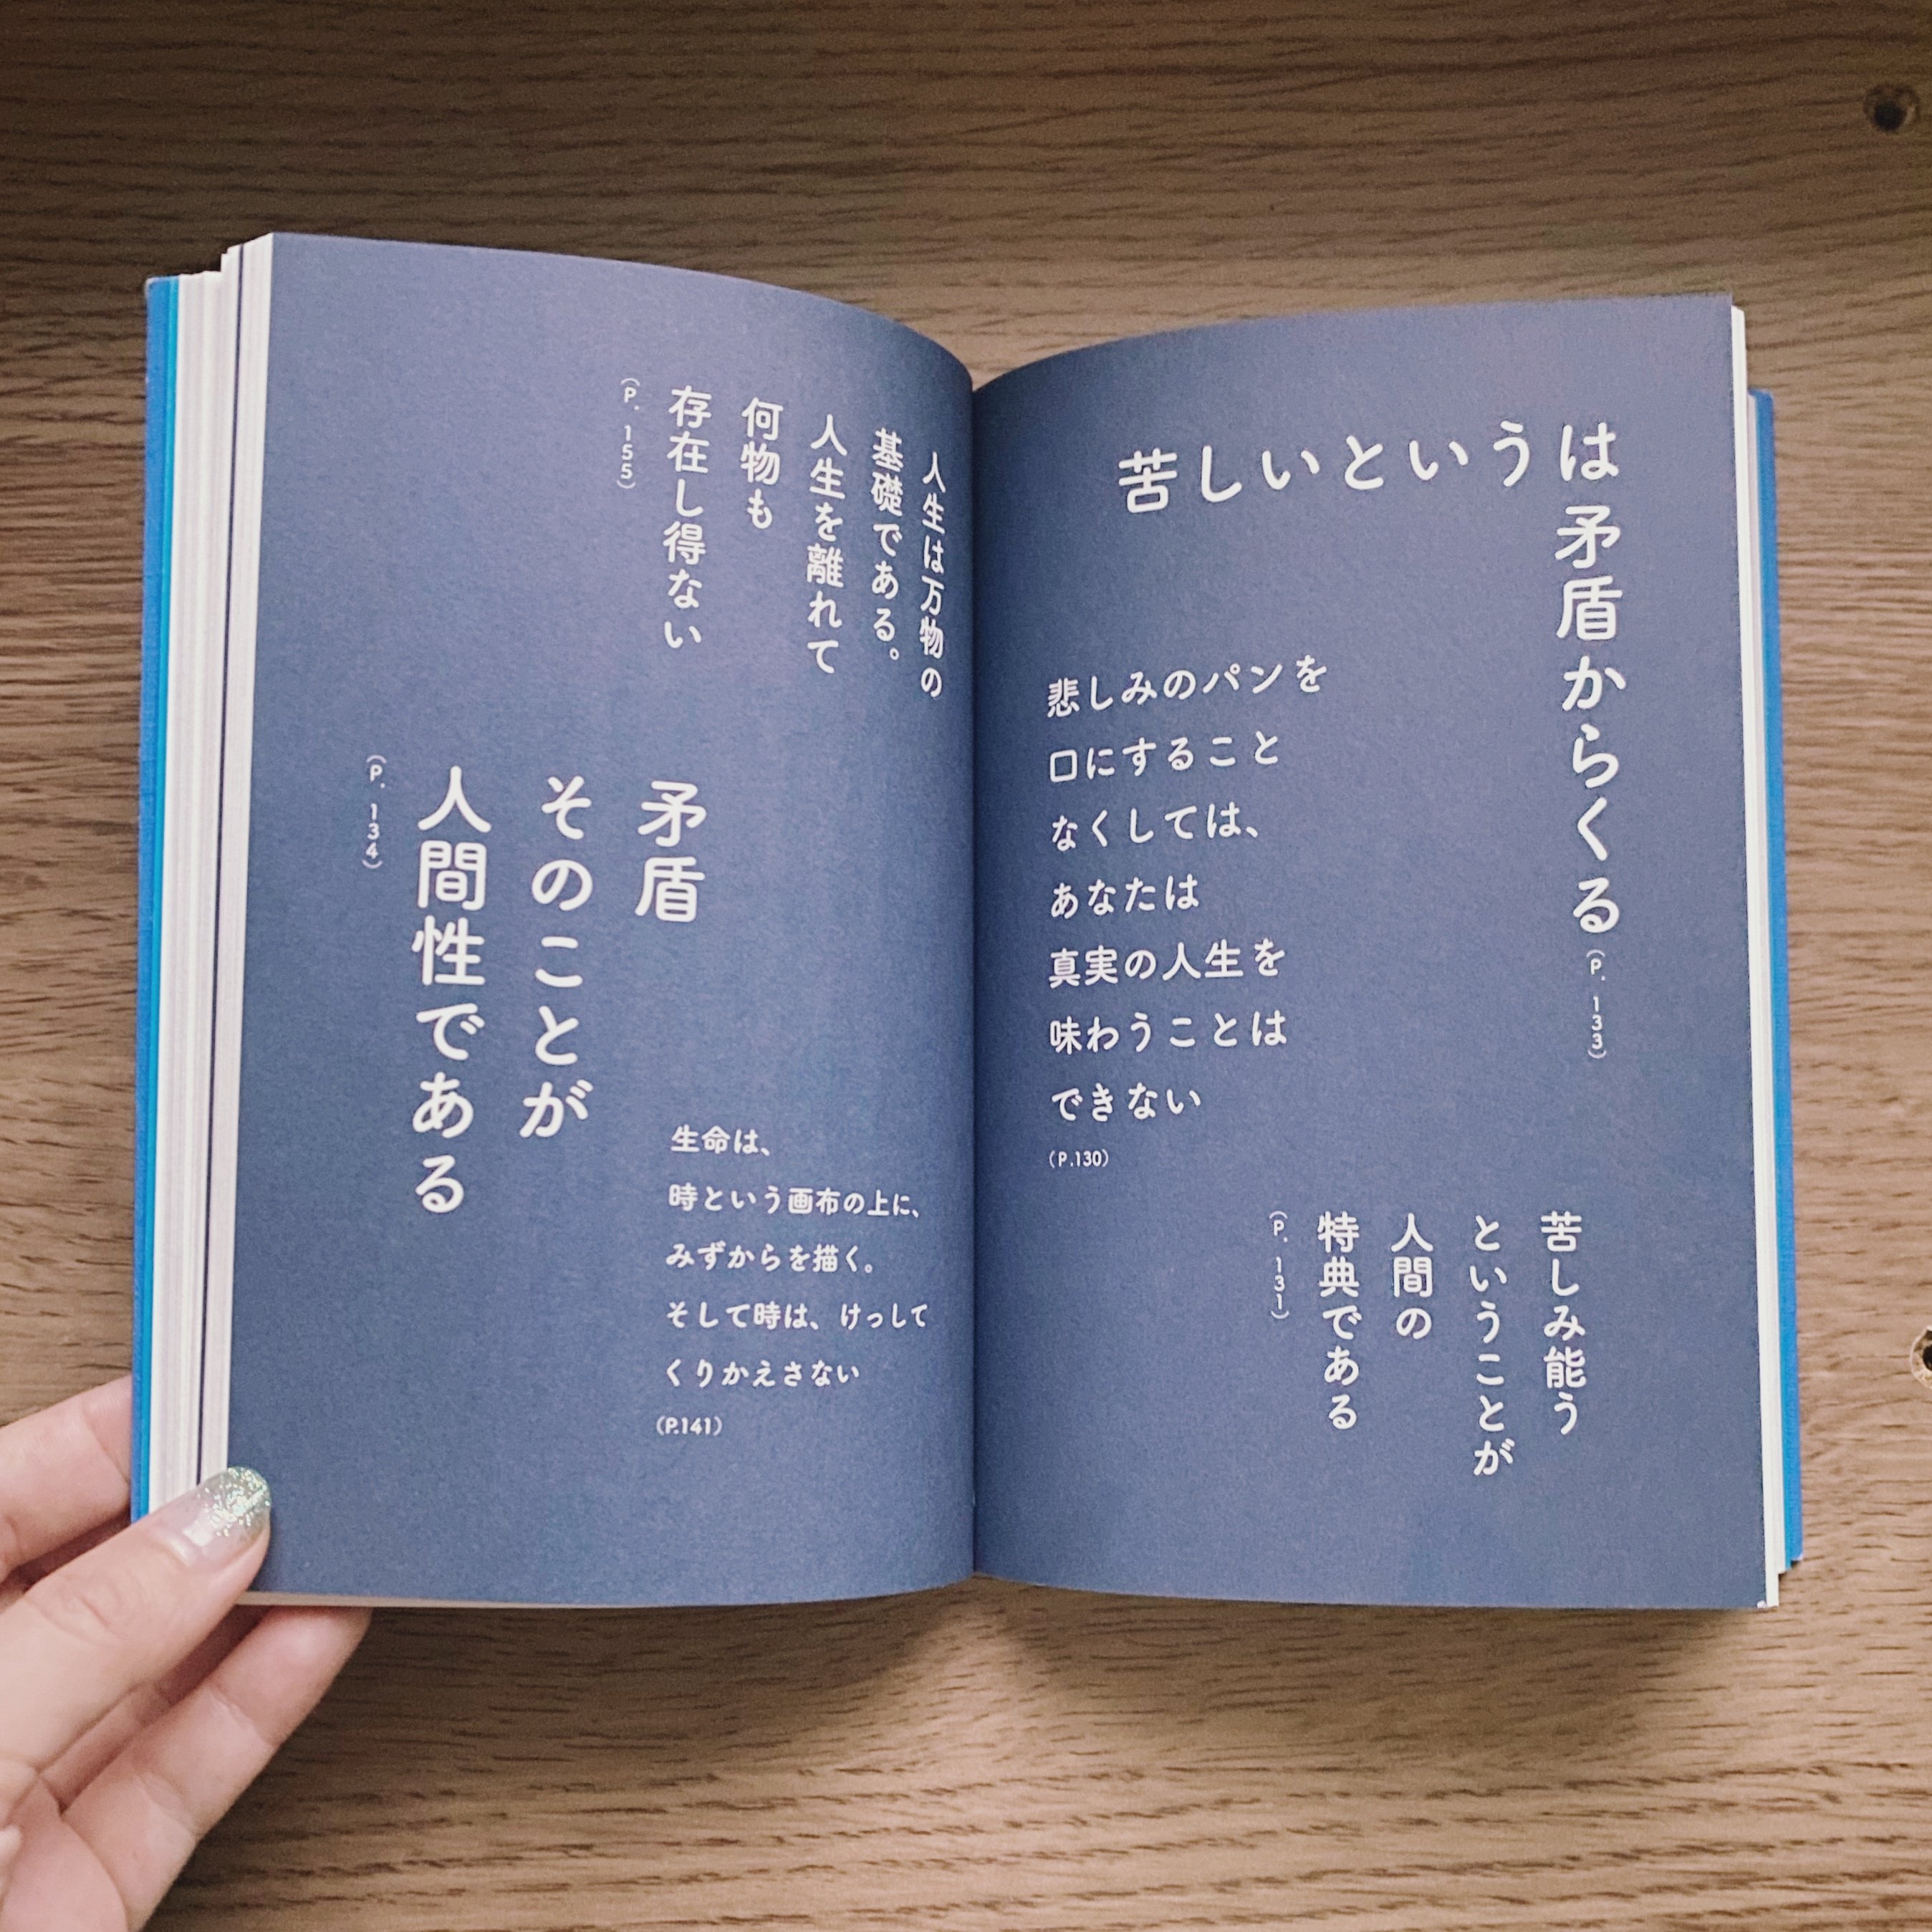 苦しいというは矛盾からくる
(P.133)
悲しみのパンを
口にすること
なくしては、
あなたは
真実の人生を
味わうことは
できない
(P.130)
苦しみ能う
ということが
人間の
特典である
(P.131)
人生は万物の
基礎である。
人生を離れて
何物も
存在し得ない
(P.155)
矛盾
そのことが
人間性である
(P.134)
生命は、
時という画布の上に、
みずからを描く。
そして時は、けっして
くりかえさない
(P.141)